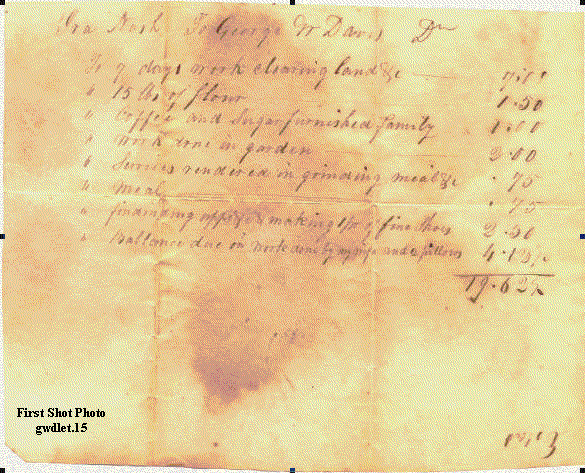 Ira Nash To George W Davis Dr
To 7 days work clearing land &c 7.00
" 15 lbs of flour 1.50
" Coffee and Sugar furnished family 1.00
" Work done in garden 2.00
" Services rendered in grinding meal &c .75
" Meal .75
" finding and making 1 pr of fine Shoes 2.50
" Ballance due on work done by my wife and pillows 4.12½
19.62½
First Shot Photo
gwdlet.15